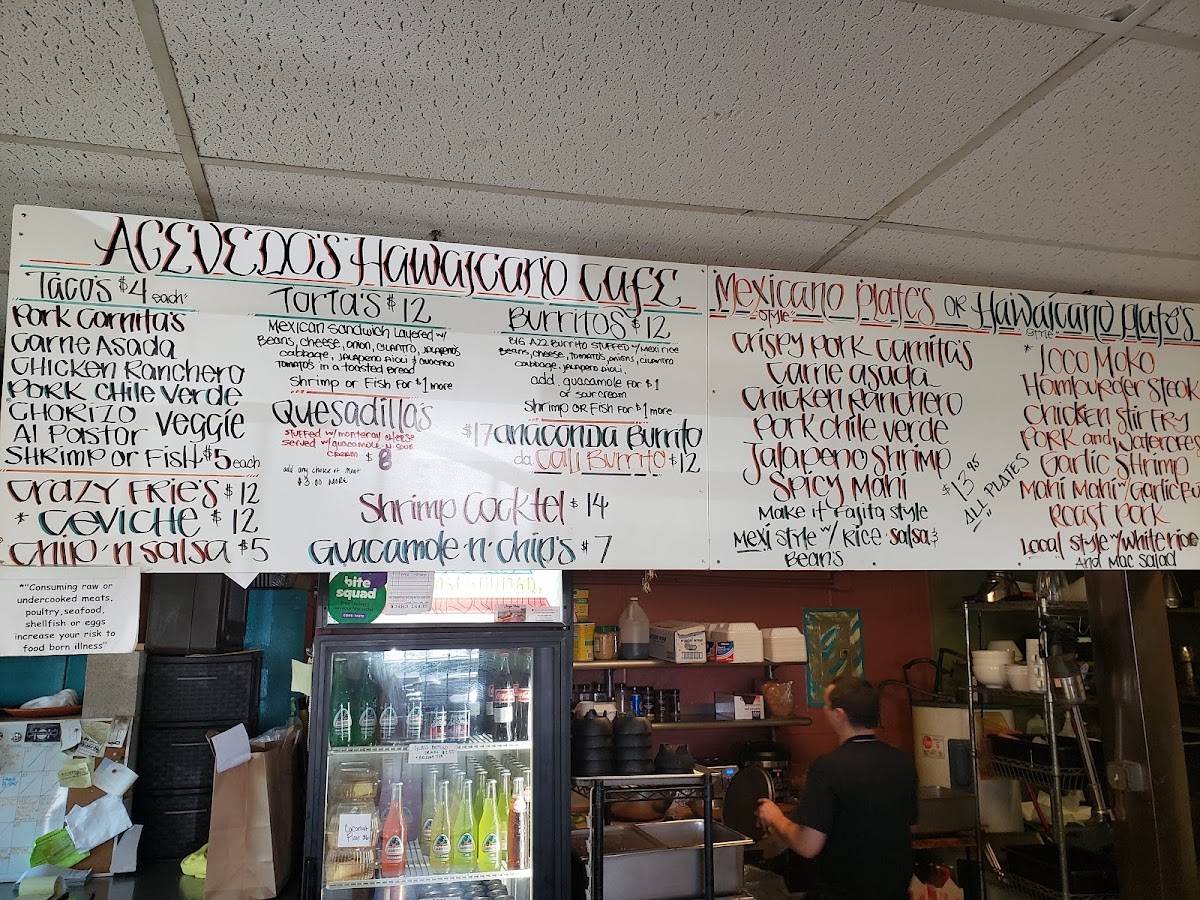 ACEVEDO'S HAWAICANO CAFE
Taco's $4 each
Pork Carnita's
Carne Asada
Chicken Ranchero
Pork Chile Verde
Chorizo Veggie
Al Pastor
Shrimp or Fish $5 each
Crazy Frie's $12
* Ceviche * $12
Chip 'n Salsa $5
Torta's $12
Mexican Sandwich Layered w/
Beans, cheese, onion, cilantro, jalapeno's
cabbage, jalapeno aioli & avocado
Tomato's in a toasted bread
Shrimp or Fish for $1 more
Quesadilla's
stuffed w/ monterey cheese
served w/ guacamole -n- sour
cream $8
add any choice of meat
$3.00 more
Burritos $12
Big Azz Burrito stuffed w/ Mexi rice
Beans, cheese, tomato's, onions, cilantro
cabbage, jalapeno aioli,
add guacamole for $1
or sour cream
Shrimp or Fish for $1 more
$17 anaconda Burrito
da Cali Burrito $12
Shrimp Cocktel $14
Guacamole 'n' chip's $7
Mexicano Plate's or Hawaicano Plate's
style
style
Crispy Pork Carnita's
Carne asada
Chicken Ranchero
Pork chile verde
Jalapeno Shrimp
Spicy Mahi
Make it Fajita style
Mexi style w/ Rice salsa &
Bean's
$13.95
ALL PLATES
* Loco Moko
Hamburger Steak
Chicken Stir Fry
Pork and Watercress
Garlic Shrimp
Mahi Mahi w/ Garlic
Roast Pork
Local style w/ white rice
And Mac Salad
*"Consuming raw or
undercooked meats,
poultry, seafood,
shellfish or eggs
increase your risk to
food born illness"
bite
squad
Coconut
Flan